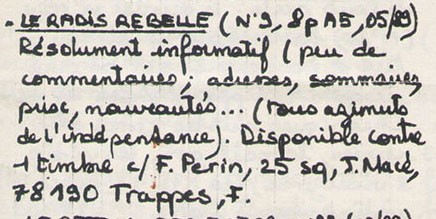 . LE RADIS REBELLE (N°9, 8p A5, 05/89)
Résolument informatif (peu de
commentaires ; adresses, sommaires,
prix, nouveautés... (tous azimuts
de l'indépendance). Disponible contre
1 timbre c/ F. Perin, 25 sq, J. Macé,
78190 Trappes, F.